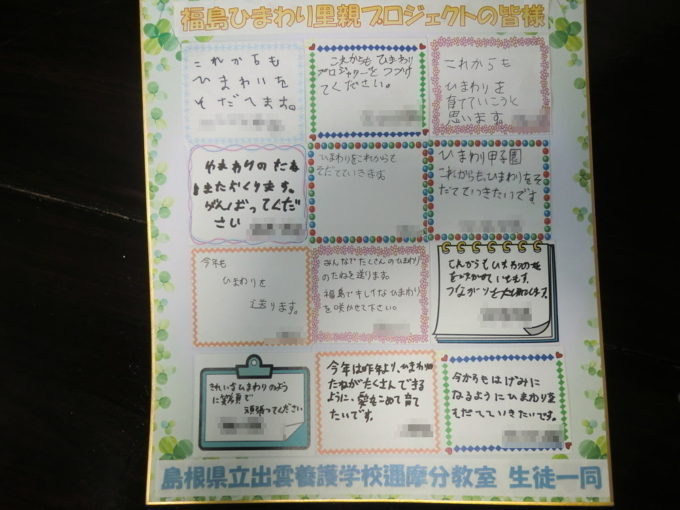 福島ひまわり里親プロジェクトの皆様
これからも
ひまわりを
そだてます。
これからもひまわり
プロジェクトをつづけ
てください。
これからも
ひまわりを
育てていこうと
思います。
ひまわりのたね
またおくります。
がんばってくだ
さい
ひまわりをこれからも
そだてていきます
ひまわり甲子園
これからも、ひまわりをそ
だてていきたいです。
今年も
ひまわりを
送ります。
みんなでたくさんのひまわり
のたねを送ります。
福島でキレイなひまわり
を咲かせて下さい。
これからもひまわりの花
をさかせていきます。
つながりを大切にします。
きれいなひまわりのよう
に笑顔で
頑張ってください
今年は昨年より、ひまわりの
たねがたくさんできる
ように、愛をこめて育て
たいです。
今からもはげみに
なるようにひまわりを
そだてていきたいです。
島根県立出雲養護学校邇摩分教室 生徒一同